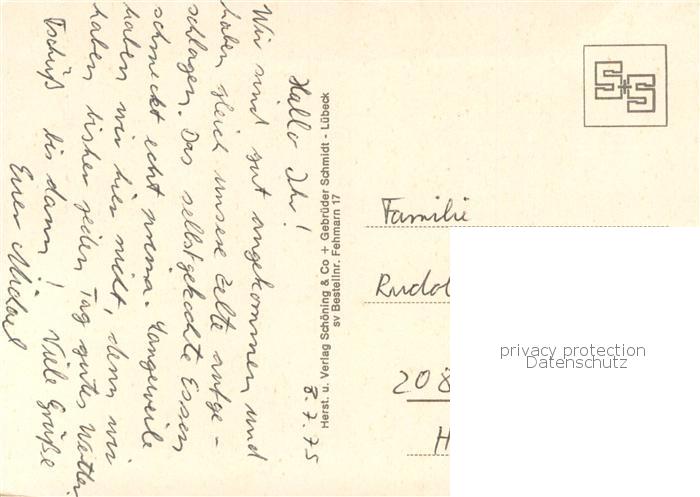 Hallo Ihr!
8.7.75
Wir sind gut angekommen und
haben gleich unsere Zelte aufge-
schlagen. Das selbstgekochte Essen
schmeckt echt prima. Langeweile
haben wir hier nicht, denn wir
haben bisher jeden Tag gutes Wetter.
Tschüß bis dann! Viele Grüße
Euer Michael
Herst. u. Verlag Schöning & Co + Gebrüder Schmidt - Lübeck
sv Bestellnr. Fehmarn 17
S+S
Familie
Rudol
208
H
privacy protection
Datenschutz